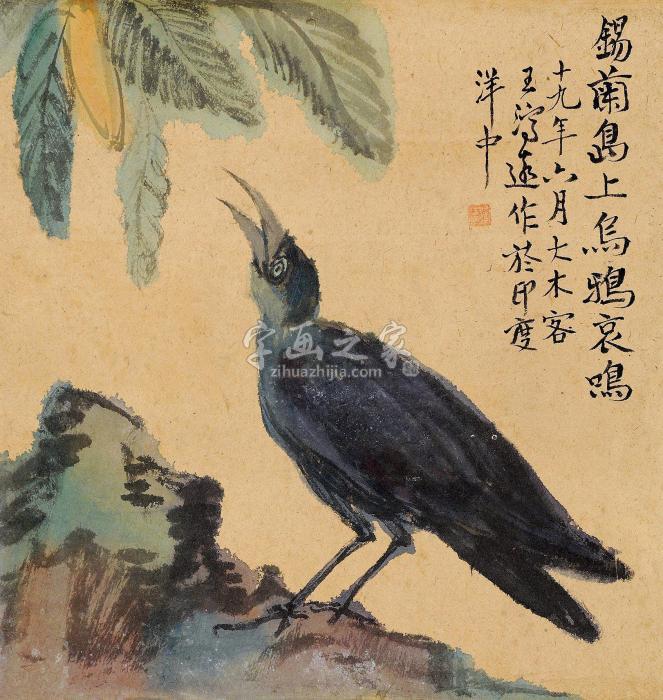 錫蘭島上烏鴉哀鳴
十九年六月大木客
王濟遠作於印度
洋中
字画之家
zihuazhijia.com